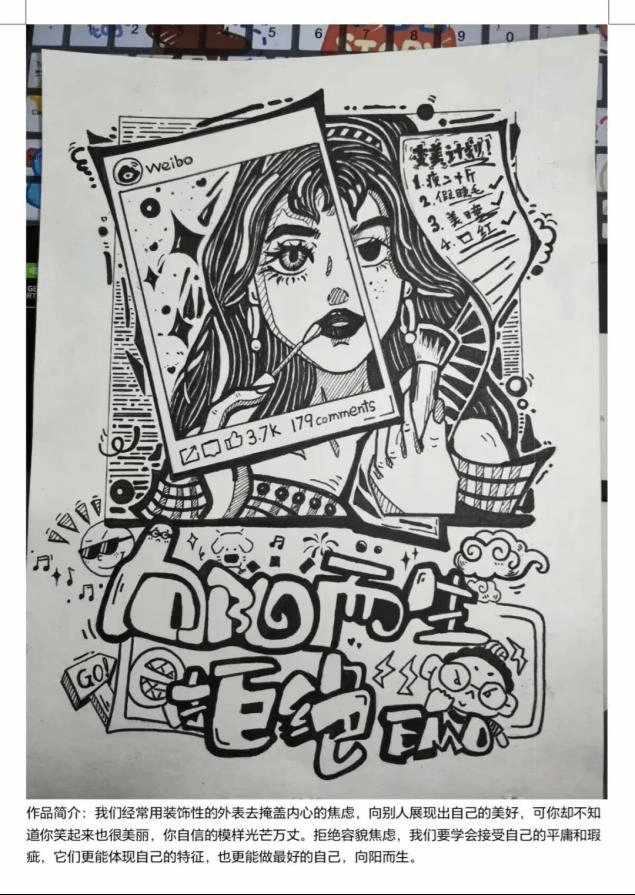 2 4 5 6 7 8 9 0
weibo
變美计划！
1.瘦二十斤
2.假睫毛
3.美瞳
4.口红
3.7K 179 comments
向阳而生
GO!
拒绝 EMO
作品简介：我们经常用装饰性的外表去掩盖内心的焦虑，向别人展现出自己的美好，可你却不知
道你笑起来也很美丽，你自信的模样光芒万丈。拒绝容貌焦虑，我们要学会接受自己的平庸和瑕
疵，它们更能体现自己的特征，也更能做最好的自己，向阳而生。